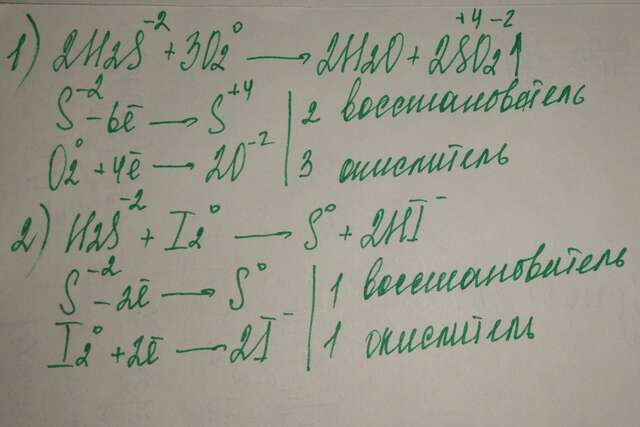 1) 2H₂S⁻² + 3O₂⁰ → 2H₂O + 2S⁺⁴O₂⁻²↑
S⁻² - 6ē → S⁺⁴ | 2 восстановитель
O₂⁰ + 4ē → 2O⁻² | 3 окислитель
2) H₂S⁻² + I₂⁰ → S⁰ + 2HI⁻
S⁻² - 2ē → S⁰ | 1 восстановитель
I₂⁰ + 2ē → 2I⁻ | 1 окислитель